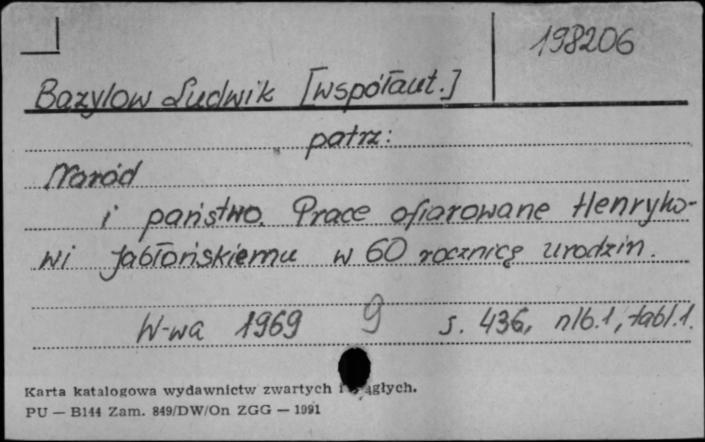 198206
Bazylow Ludwik [współaut.]
patrz:
Naród
i państwo. Prace ofiarowane Henryko-
wi Jabłońskiemu w 60 rocznicę urodzin.
W-wa 1969 9 s. 436, nlb.1, tabl.1.
Karta katalogowa wydawnictw zwartych i
PU — B144 Zam. 849/DW/On ZGG — 1991